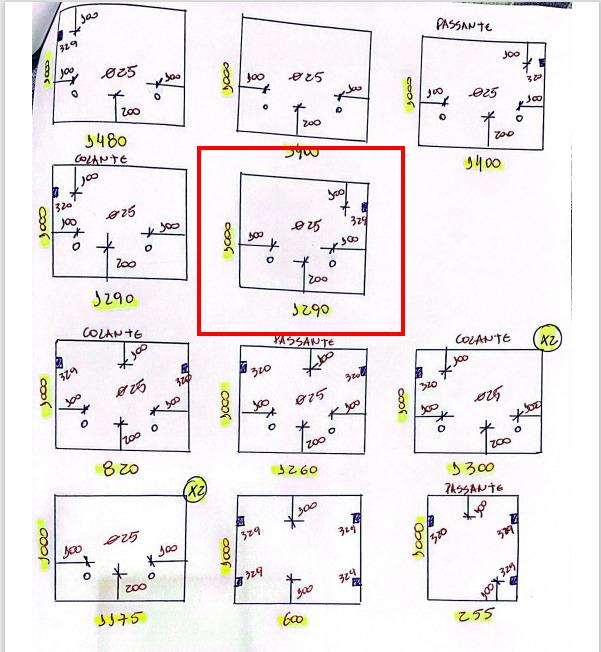 100
329
1000
100
Ø25
100
0
0
200
1480
1000
100
Ø25
100
0
0
200
1400
PASSANTE
100
320
1000
100
Ø25
100
0
0
200
1400
COLANTE
100
320
1000
100
Ø25
100
0
0
200
1290
100
329
1000
100
Ø25
100
0
0
200
1290
COLANTE
100
329
320
1000
100
Ø25
100
0
0
200
820
PASSANTE
100
320
320
1000
100
Ø25
100
0
0
200
1260
COLANTE
X2
100
320
1000
100
Ø25
100
0
0
200
1300
X2
1000
100
Ø25
100
0
0
200
1175
100
329
329
1000
329
329
100
600
PASSANTE
100
320
329
1000
329
100
255